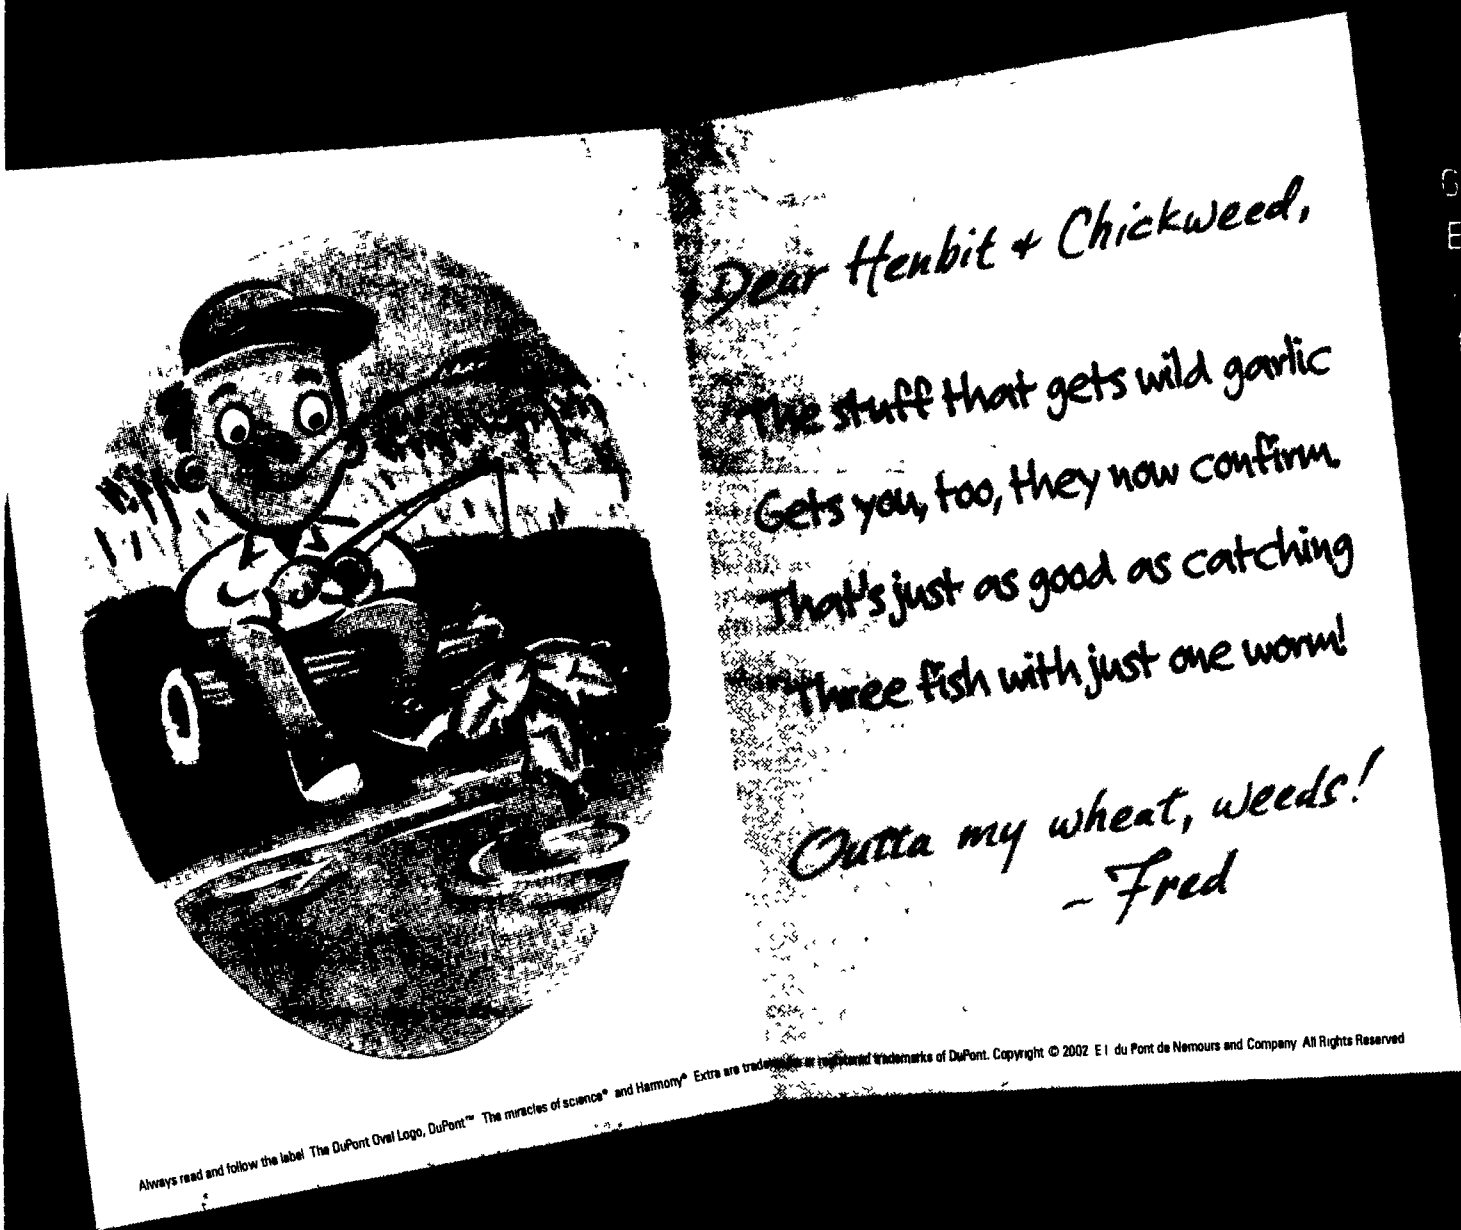 Dear Henbit & Chickweed,
The stuff that gets wild garlic
Gets you, too, they now confirm.
That's just as good as catching
Three fish with just one worm!
Outta my wheat, weeds!
- Fred
Always read and follow the label The DuPont Oval Logo, DuPont™ The miracles of science® and Harmony® Extra are trademarks or registered trademarks of DuPont. Copyright © 2002 E I du Pont de Nemours and Company All Rights Reserved